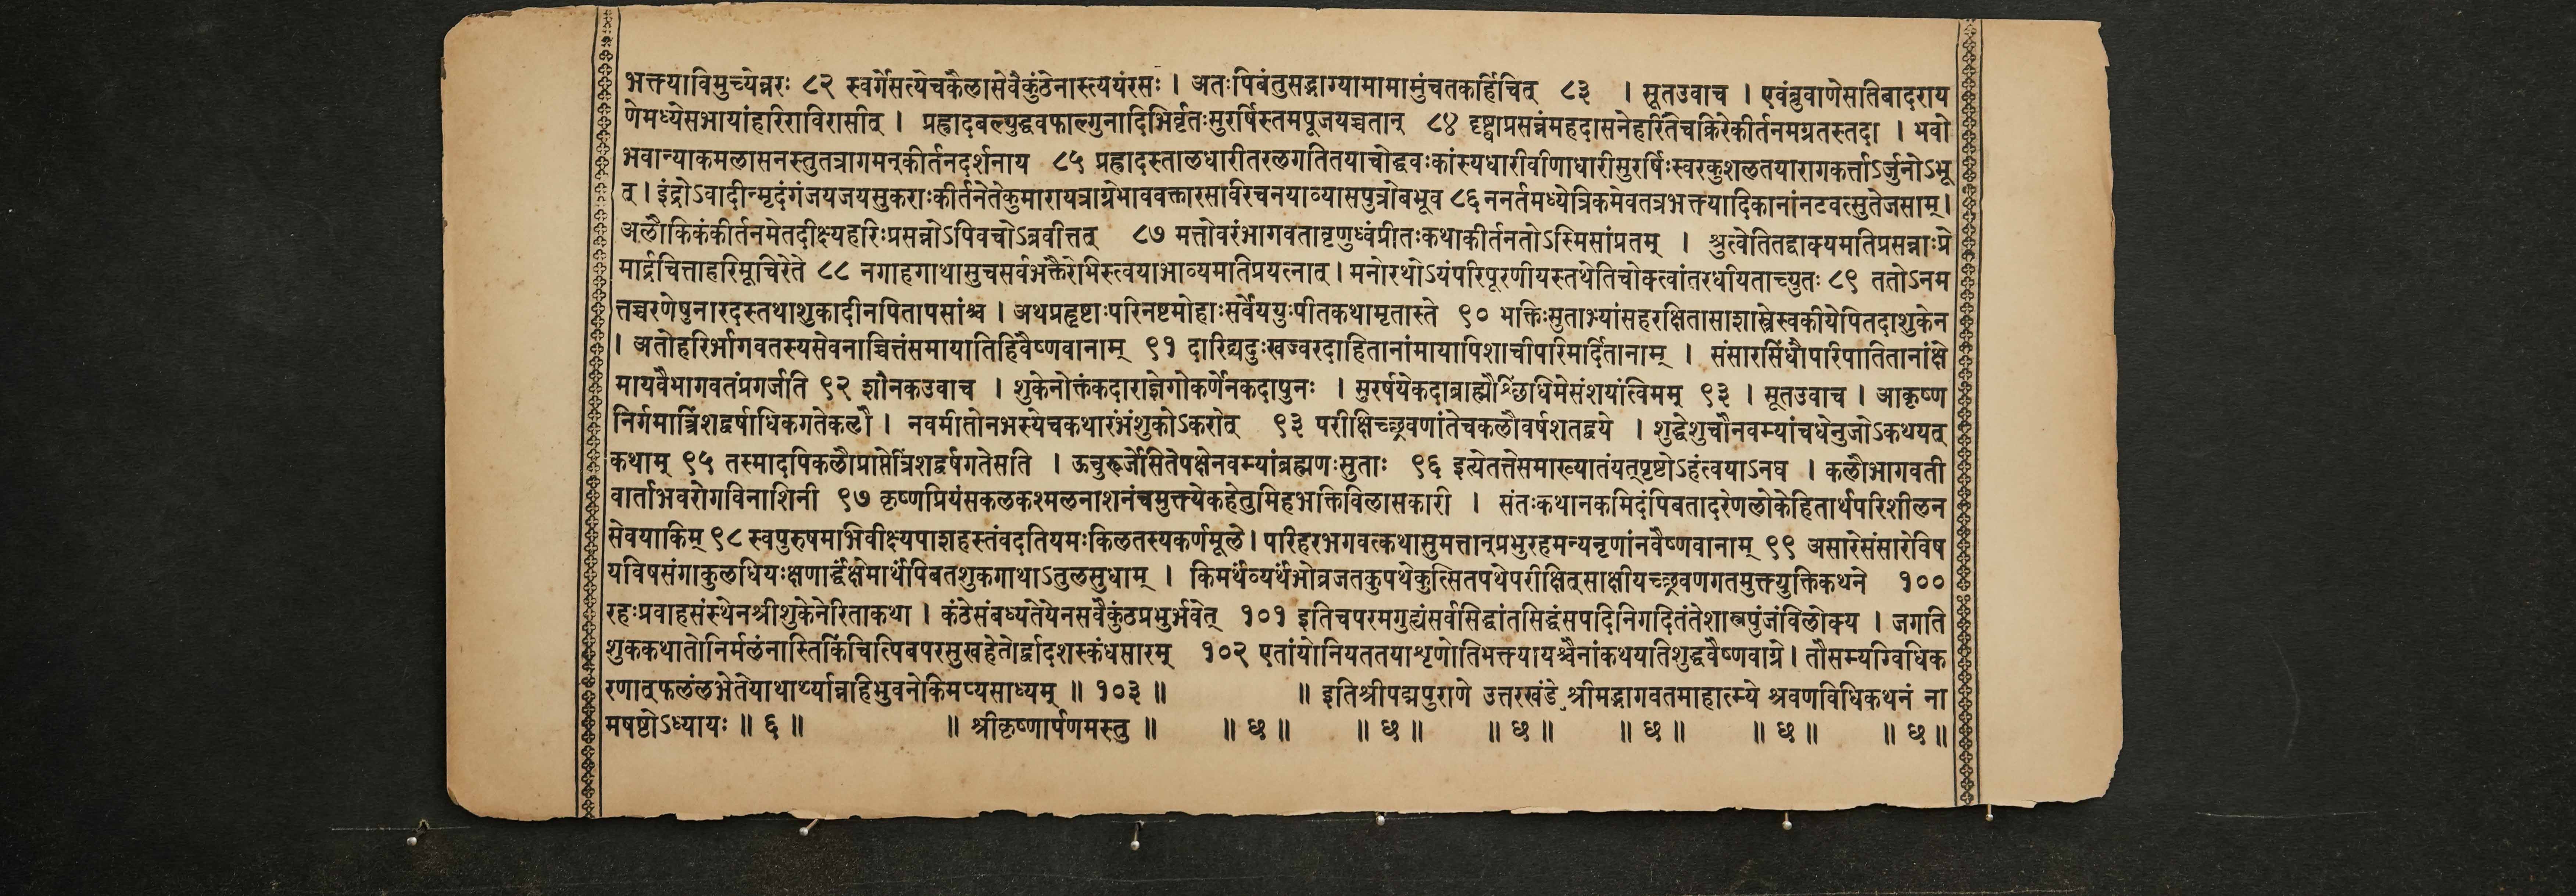 भक्तयाविमुच्येन्नरः ८२ स्वर्गेसत्येचकैलासेवैकुंठेनास्त्ययंरसः । अतःपिबंतुसद्भाग्यामामामुंचतकर्हिचित् ८३ । सूतउवाच । एवंब्रुवाणेसतिबादराय
णेमध्येसभायांहरिराविरासीत् । प्रह्रादबल्युद्धवफाल्गुनादिभिर्वृतःसुरर्षिस्तमपूजयच्चतान् ८४ दृष्ट्वाप्रसन्नंमहदासनेहरिंतेचक्रिरेकीर्तनमग्रतस्तदा । भवो
भवान्याकमलासनस्तुतत्रागमन्कीर्तनदर्शनाय ८५ प्रह्रादस्तालधारीतरलगतितयाचोद्धवःकांस्यधारीवीणाधारीसुरर्षिःस्वरकुशलतयारागकर्त्ताऽर्जुनोऽभू
त् । इंद्रोऽवादीन्मृदंगंजयजयसुकराःकीर्तनेतेकुमारायत्राग्रेभाववक्तारसविरचनयाव्यासपुत्रोबभूव ८६ ननर्तमध्येत्रिकमेवतत्रभक्तयादिकानांनटवत्सुतेजसाम् ।
अलौकिकंकीर्तनमेतदीक्ष्यहरिःप्रसन्नोऽपिवचोऽब्रवीत्तत् ८७ मत्तोवरंभागवतावृणुध्वंप्रीतःकथाकीर्तनतोऽस्मिसांप्रतम् । श्रुत्वेतितद्वाक्यमतिप्रसन्नाःप्रे
मार्द्रचित्ताहरिमूचिरेते ८८ नगाहगाथासुचसर्वभक्तैरेभिस्त्वयाभाव्यमतिप्रयत्नात् । मनोरथोऽयंपरिपूरणीयस्तथेतिचोक्त्वांतरधीयताच्युतः ८९ ततोऽनम
त्तच्चरणेषुनारदस्तथाशुकादीनपितापसांश्च । अथप्रहृष्टाःपरिनष्टमोहाःसर्वेययुःपीतकथामृतास्ते ९० भक्तिःसुताभ्यांसहरक्षितासाशास्त्रेस्वकीयेपितदाशुकेन
। अतोहरिर्भागवतस्यसेवनाच्चित्तंसमायातिहिवैष्णवानाम् ९१ दारिद्र्यदुःखज्वरदाहितानांमायापिशाचीपरिमर्दितानाम् । संसारसिंधौपरिपातितानांक्षे
मायवैभागवतंप्रगर्जति ९२ शौनकउवाच । शुकेनोक्तंकदाराज्ञेगोकर्णेनकदापुनः । सुरर्षयेकदाब्राह्मैश्छिंधिमेसंशयंत्विमम् ९३ । सूतउवाच । आकृष्ण
निर्गमात्रिंशद्वर्षाधिकगतेकलौ । नवमीतोनभस्येचकथारंभंशुकोऽकरोत् ९३ परीक्षिच्छ्रवणांतेचकलौवर्षशतद्वये । शुद्धेशुचौनवम्यांचधेनुजोऽकथयत्
कथाम् ९५ तस्मादपिकलौप्राप्तेत्रिंशद्वर्षगतेसति । ऊचुरूर्जेसितेपक्षेनवम्यांब्रह्मणःसुताः ९६ इत्येतत्तेसमाख्यातंयत्पृष्टोऽहंत्वयाऽनघ । कलौभागवती
वार्ताभवरोगविनाशिनी ९७ कृष्णप्रियंसकलकश्मलनाशनंचमुक्त्येकहेतुमिहभक्तिविलासकारी । संतःकथानकमिदंपिबतादरेणलोकेहितार्थपरिशीलन
सेवयाकिम् ९८ स्वपुरुषमभिवीक्ष्यपाशहस्तंवदतियमःकिलतस्यकर्णमूले । परिहरभगवत्कथासुमत्तान्प्रभुरहमन्यनृणांनवैष्णवानाम् ९९ असारेसंसारेविष
यविषसंगाकुलधियःक्षणार्द्धंक्षेमार्थंपिबतशुकगाथाऽतुलसुधाम् । किमर्थंव्यर्थंभोव्रजतकुपथेकुत्सितपथेपरीक्षित्साक्षीयच्छ्रवणगतमुक्तयुक्तिकथने १००
रहःप्रवाहसंस्थेनश्रीशुकेनेरिताकथा । कंठेसंबध्यतेयेनसवैकुंठप्रभुर्भवेत् १०१ इतिचपरमगुह्यंसर्वसिद्धांतसिद्धंसपदिनिगदितंतेशास्त्रपुंजंविलोक्य । जगति
शुककथातोनिर्मलंनास्तिकिंचित्पिबपरसुखहेतोर्द्वादशस्कंधसारम् १०२ एतांयोनियततयाशृणोतिभक्तयायश्चैनांकथयतिशुद्धवैष्णवाग्रे । तौसम्यग्विधिक
रणात्फलंलभेतेयाथार्थ्यान्नहिभुवनेकिमप्यसाध्यम् ॥ १०३ ॥ ॥ इतिश्रीपद्मपुराणे उत्तरखंडे श्रीमद्भागवतमाहात्म्ये श्रवणविधिकथनं ना
मषष्ठोऽध्यायः ॥ ६ ॥ ॥ श्रीकृष्णार्पणमस्तु ॥ ॥ छ ॥ ॥ छ ॥ ॥ छ ॥ ॥ छ ॥ ॥ छ ॥ ॥ छ ॥